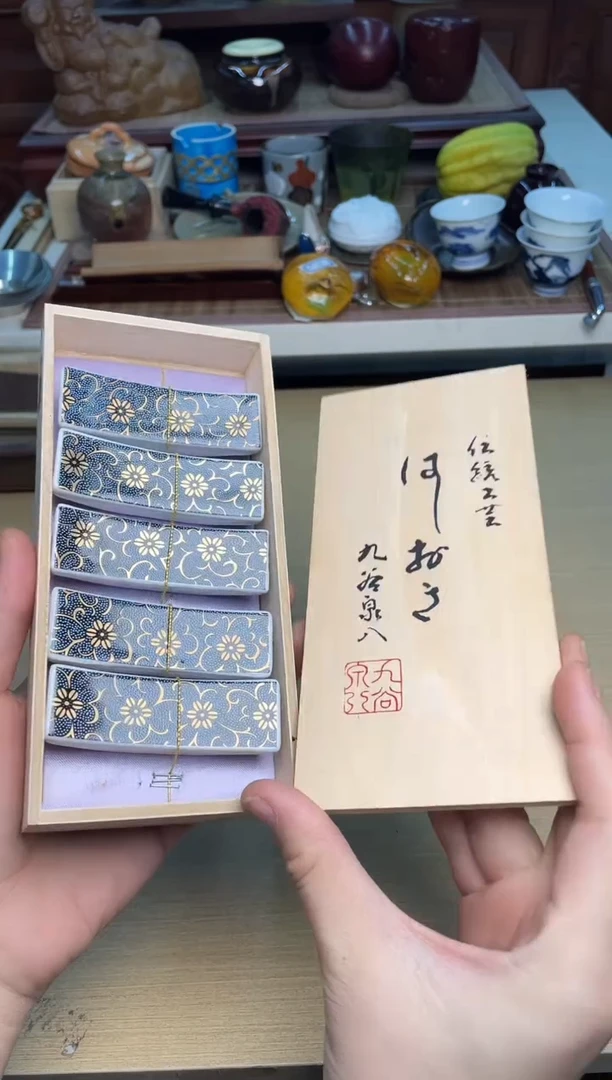 伝統工芸
はしおき
九谷泉八
九谷
泉八